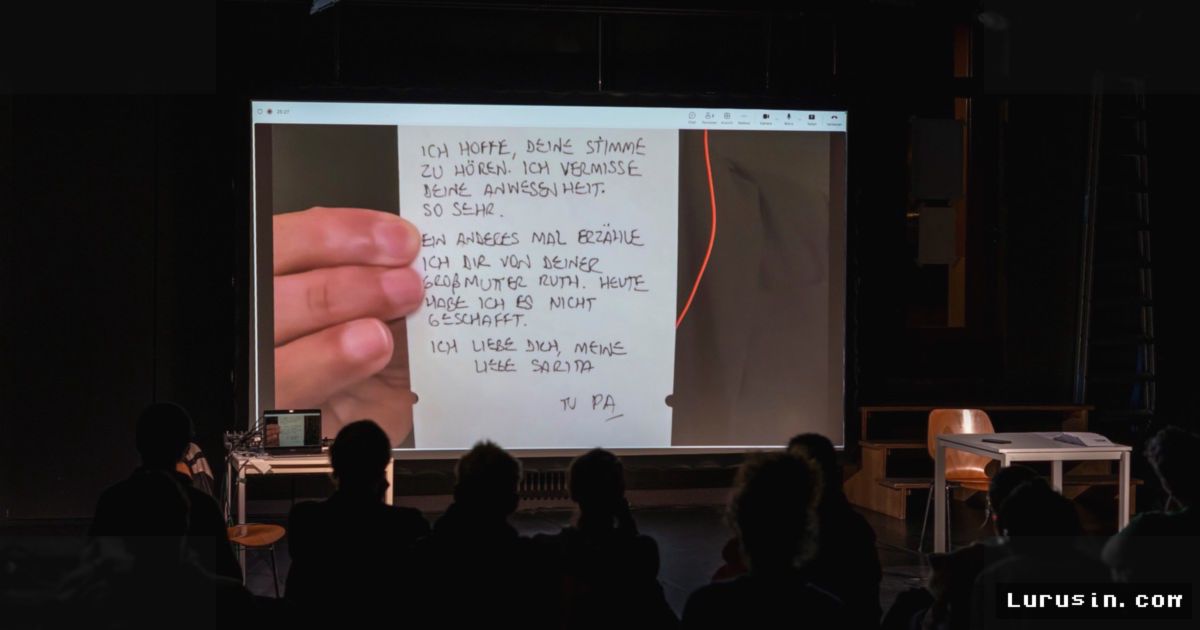 ICH HOFFE, DEINE STIMME
ZU HÖREN. ICH VERMISSE
DEINE ANWESENHEIT.
SO SEHR.
EIN ANDERES MAL ERZÄHLE
ICH DIR VON DEINER
GROßMUTTER RUTH. HEUTE
HABE ICH ES NICHT
GESCHAFFT.
ICH LIEBE DICH, MEINE
LIEBE SARITA
TU PA
Lurusin.com